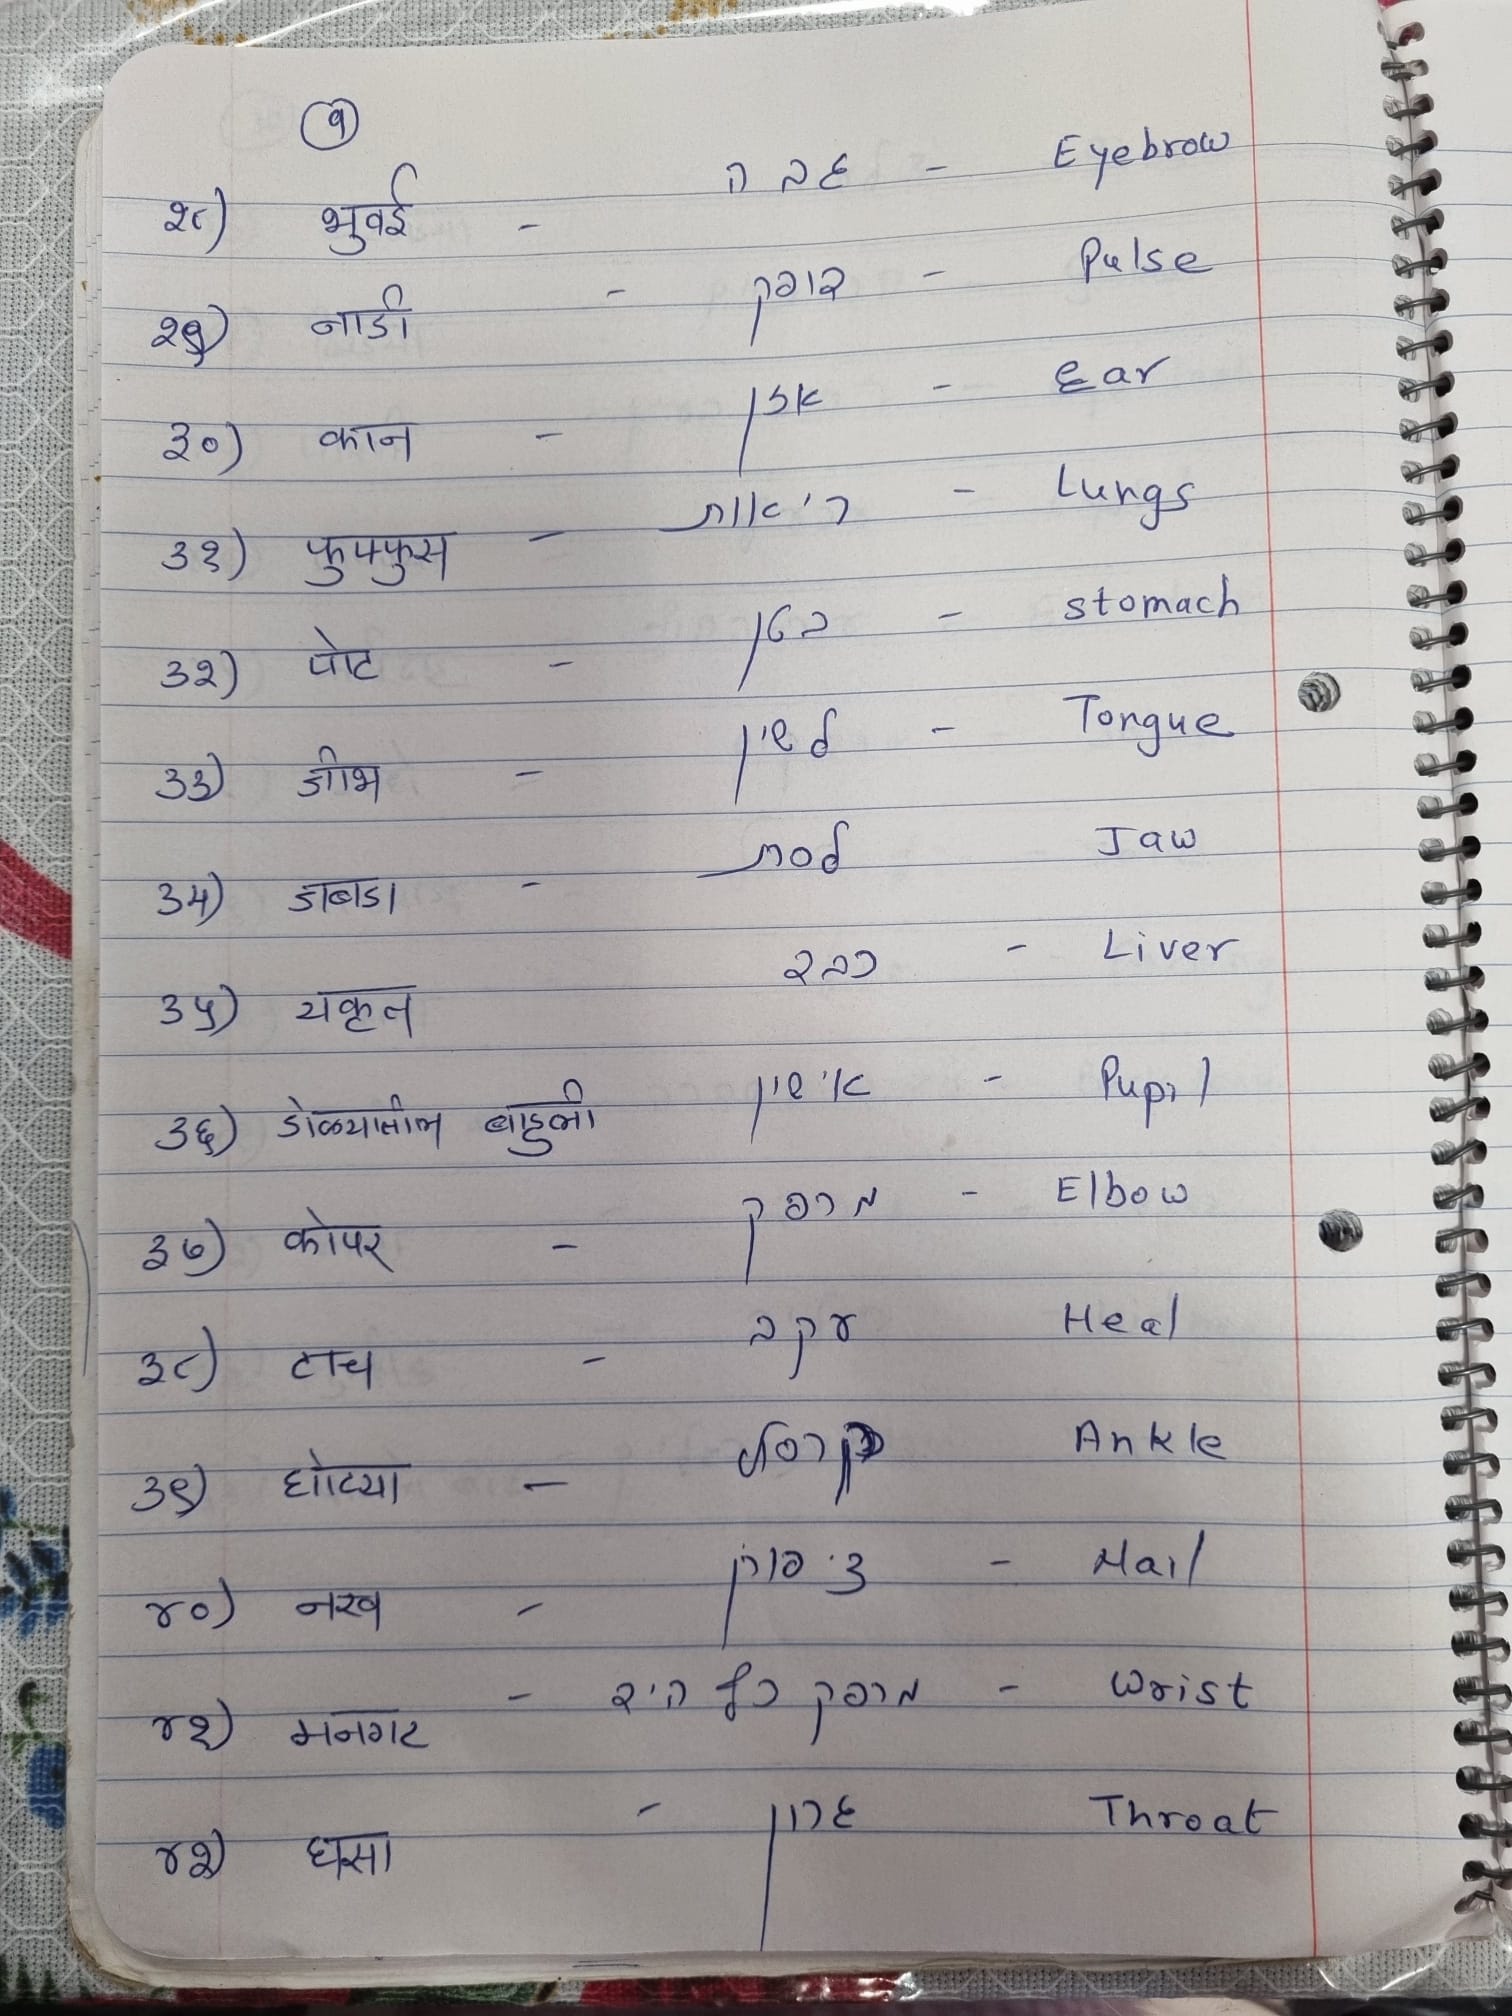 १
२८) भुवई - גבה - Eyebrow
२९) नाडी - דופק - Pulse
३०) कान - אזן - Ear
३१) फुफ्फुस - ריאות - Lungs
३२) पोट - בטן - stomach
३३) जीभ - לשון - Tongue
३४) जबडा - לסת Jaw
३५) यकृत כבד - Liver
३६) डोळ्यातील बाहुली אישון - Pupil
३७) कोपर - מרפק - Elbow
३८) टाच - עקב Heal
३९) घोट्या - קרסל Ankle
४०) नख - ציפורן - Nail
४१) मनगट - מרפק כף היד - Wrist
४२) घसा - גרון Throat